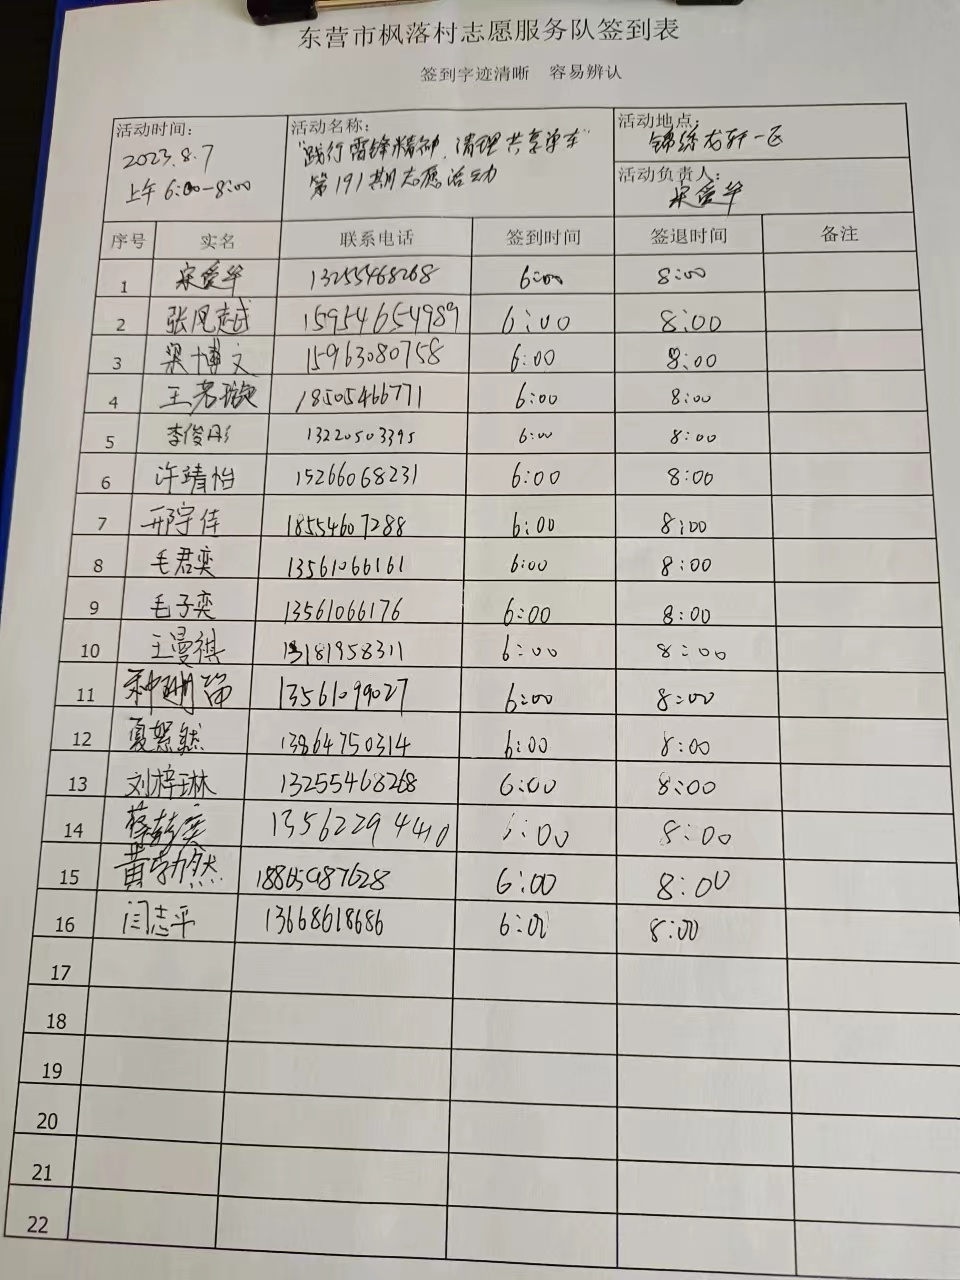 东营市枫落村志愿服务队签到表
签到字迹清晰 容易辨认
活动时间: 2023.8.7 上午 6:00-8:00
活动名称: "践行雷锋精神,清理共享单车" 第191期志愿活动
活动地点: 锦绣龙轩一区
活动负责人: 宋爱华
序号 实名 联系电话 签到时间 签退时间 备注
1 宋爱华 13255468268 6:00 8:00
2 张凤越 15954654989 6:00 8:00
3 梁博文 15963080758 6:00 8:00
4 王茗璇 18505466771 6:00 8:00
5 李俊彤 13220503395 6:00 8:00
6 许靖怡 15266068231 6:00 8:00
7 邢宇佳 18554607288 6:00 8:00
8 毛君奕 13561066161 6:00 8:00
9 毛子奕 13561066176 6:00 8:00
10 王曼祺 13181958311 6:00 8:00
11 13561099027 6:00 8:00
12 夏恕然 13864750314 6:00 8:00
13 刘梓琳 13255468268 6:00 8:00
14 13562294410 6:00 8:00
15 黄勃然 18865987628 6:00 8:00
16 闫志平 13668618686 6:00 8:00
17
18
19
20
21
22